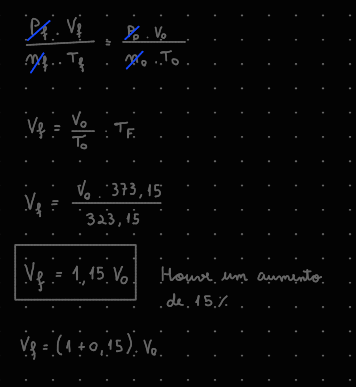 P_f . V_f / n_f . T_f = P_o . V_o / n_o . T_o
V_f = V_o / T_o . T_F
V_f = V_o . 373,15 / 323,15
V_f = 1,15 V_o Houve um aumento
de 15%
V_f = (1 + 0,15) . V_o